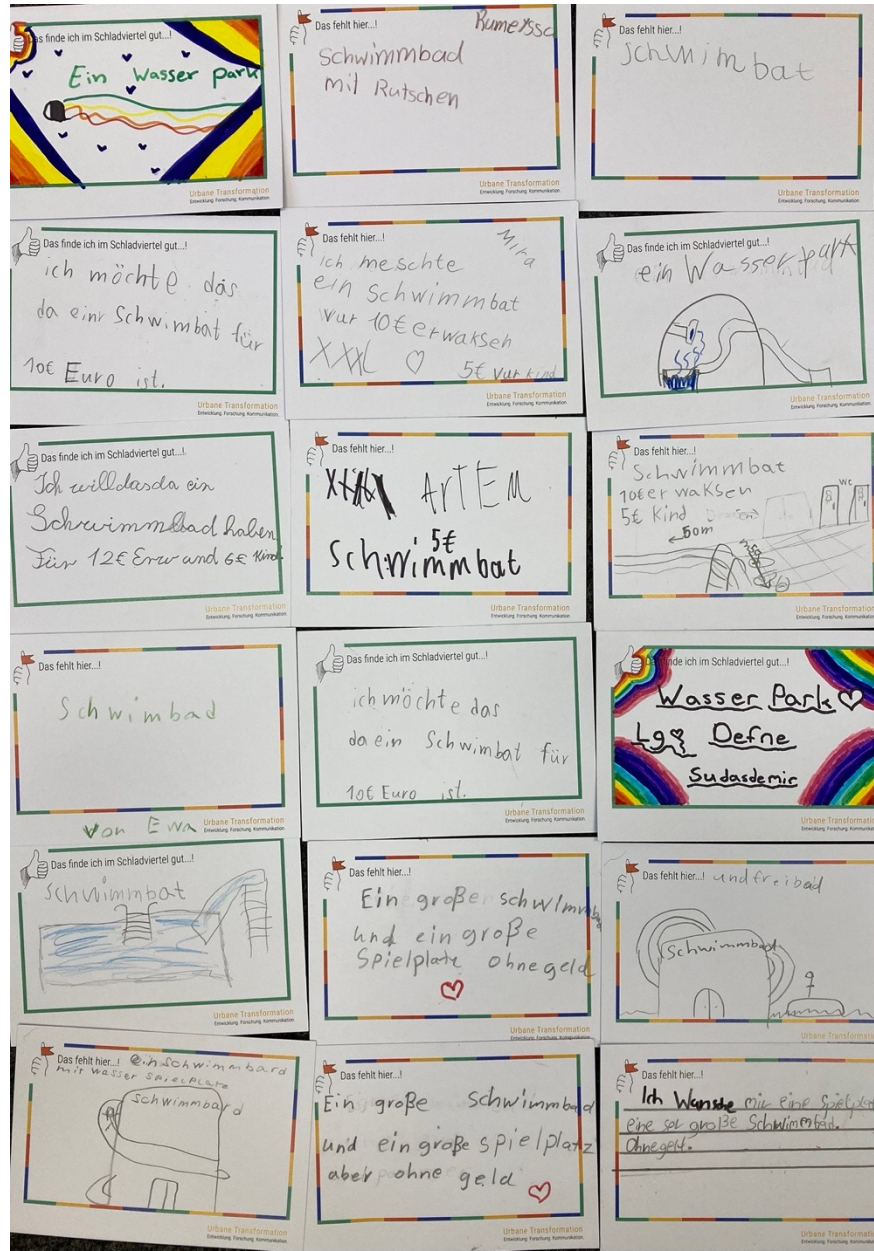 Das finde ich im Schladviertel gut...!
Ein Wasser park
Urbane Transformation
Entwicklung. Forschung. Kommunikation.
Das fehlt hier...!
Schwimmbad
mit Rutschen
Urbane Transformation
Entwicklung. Forschung. Kommunikation.
Das fehlt hier...!
Schwimbat
Urbane Transformation
Entwicklung. Forschung. Kommunikation.
Das finde ich im Schladviertel gut...!
ich möchte das
da einr Schwimbat für
10€ Euro ist.
Urbane Transformation
Entwicklung. Forschung. Kommunikation.
Das fehlt hier...!
Mira
ich meschte
ein Schwimmbat
vur 10€ erwaksen
XXXL
5€ vur kind
Urbane Transformation
Entwicklung. Forschung. Kommunikation.
Das finde ich im Schladviertel gut...!
ein Wasserpark
Urbane Transformation
Entwicklung. Forschung. Kommunikation.
Das finde ich im Schladviertel gut...!
Ich will das da ein
Schwimmbad haben
Für 12€ Erw und 6€ Kind
Urbane Transformation
Entwicklung. Forschung. Kommunikation.
Das fehlt hier...!
ArTEM
5€
Schwimmbat
Urbane Transformation
Entwicklung. Forschung. Kommunikation.
Das fehlt hier...!
Schwimmbat
10€ er waksen
5€ Kind
WC
50m
Urbane Transformation
Entwicklung. Forschung. Kommunikation.
Das fehlt hier...!
Schwimbad
von Ewa
Urbane Transformation
Entwicklung. Forschung. Kommunikation.
Das finde ich im Schladviertel gut...!
ich möchte das
da ein Schwimbat für
10€ Euro ist.
Urbane Transformation
Entwicklung. Forschung. Kommunikation.
finde ich im Schladviertel gut...!
Wasser Park
Lg Defne
Sudasdemir
Urbane Transformation
Entwicklung. Forschung. Kommunikation.
Das finde ich im Schladviertel gut...!
Schwimmbat
Urbane Transformation
Entwicklung. Forschung. Kommunikation.
Das fehlt hier...!
Ein große schwimmbad
und ein große
Spielplate ohne geld
Urbane Transformation
Das fehlt hier...! und freibad
Schwimmbad
Urbane Transformation
Das fehlt hier...! Ein Schwimmbard
mit wasser spielplate
Schwimmbard
Urbane Transformation
Entwicklung. Forschung. Kommunikation.
Das fehlt hier...!
Ein große schwimmbad
und ein große spielplatz
aber ohne geld
Urbane Transformation
Entwicklung. Forschung. Kommunikation.
Das fehlt hier...!
Ich Wünsche mir eine
eine ser große Schwimmbad.
Ohnegelt.
Urbane Transformation
Entwicklung. Forschung. Kommunikation.